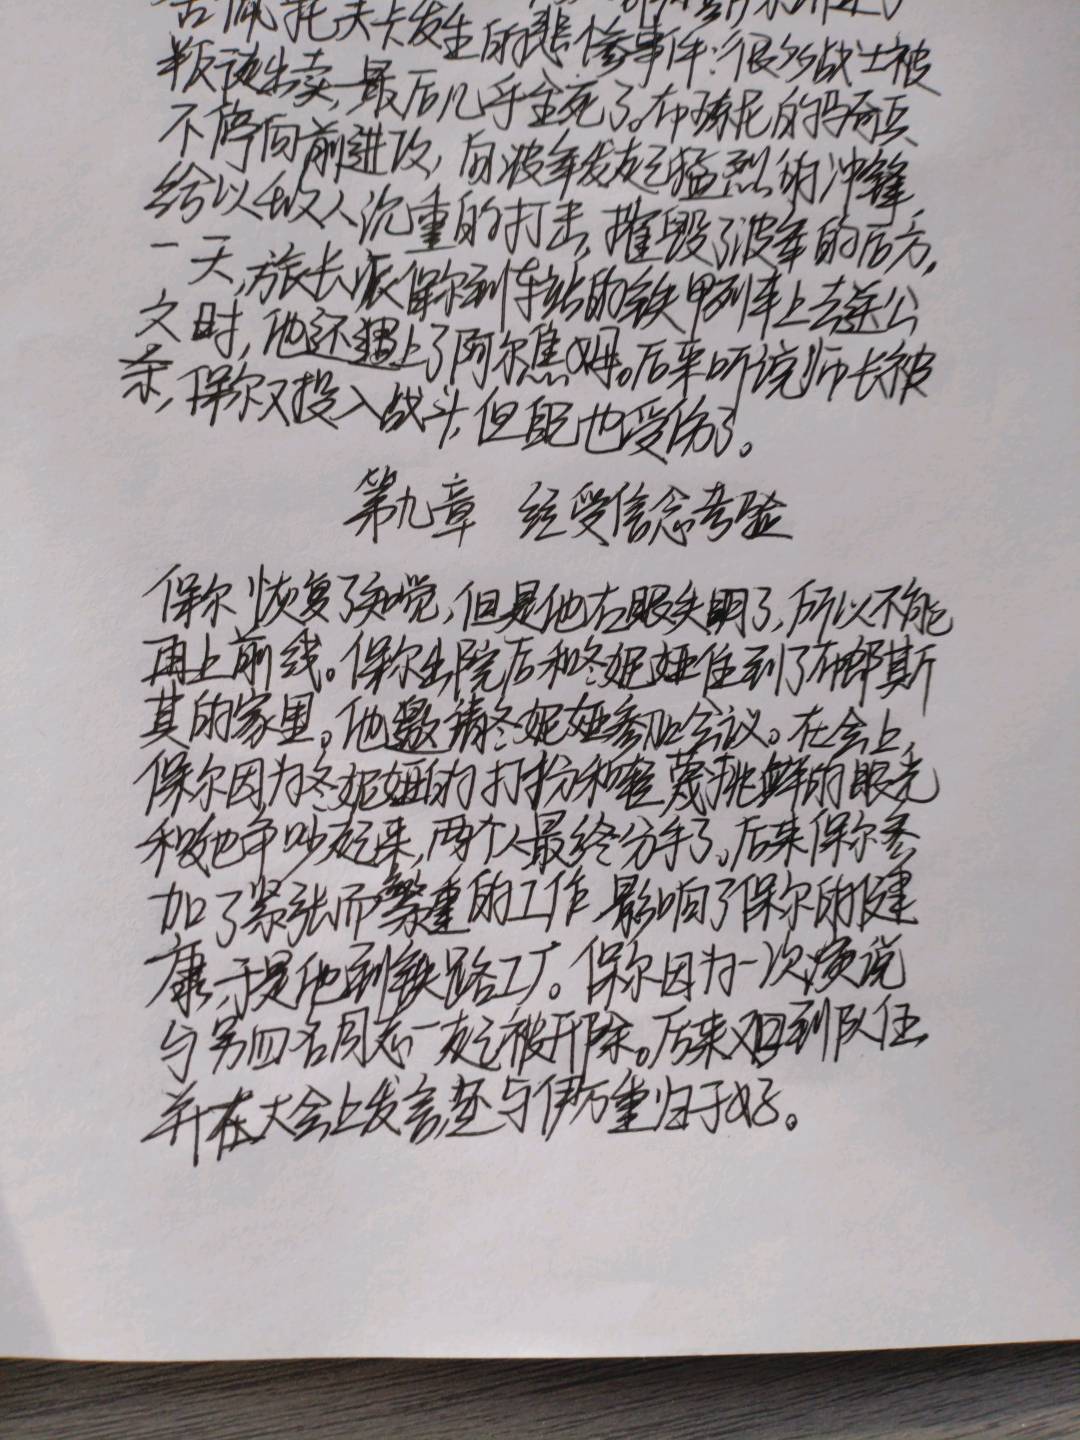 舍佩托夫卡发生的悲惨事件:很多战士被
叛徒出卖,最后几乎全死了。布琼尼的骑兵
不停向前进攻,向波军发起猛烈的冲锋,
给以敌人沉重的打击,摧毁了波军的后方,
一天,旅长派保尔到车站的铁甲列车上去送公
文时,他还遇上了阿尔焦姆。后来听说师长被
杀,保尔又投入战斗,但自己也受伤了。
第九章 经受信念考验
保尔恢复了知觉,但是他右眼失明了,所以不能
再上前线。保尔出院后和冬妮娅住到了布郎斯
其的家里。他邀请冬妮娅参加会议。在会上,
保尔因为冬妮娅的打扮和轻蔑挑衅的眼光
和她争吵起来,两个人最终分手了。后来保尔参
加了紧张而繁重的工作 影响了保尔的健
康,于是他到铁路工厂。保尔因为一次演说
与另四名同志一起被开除。后来又回到队伍
并在大会上发言,还与伊万重归于好。